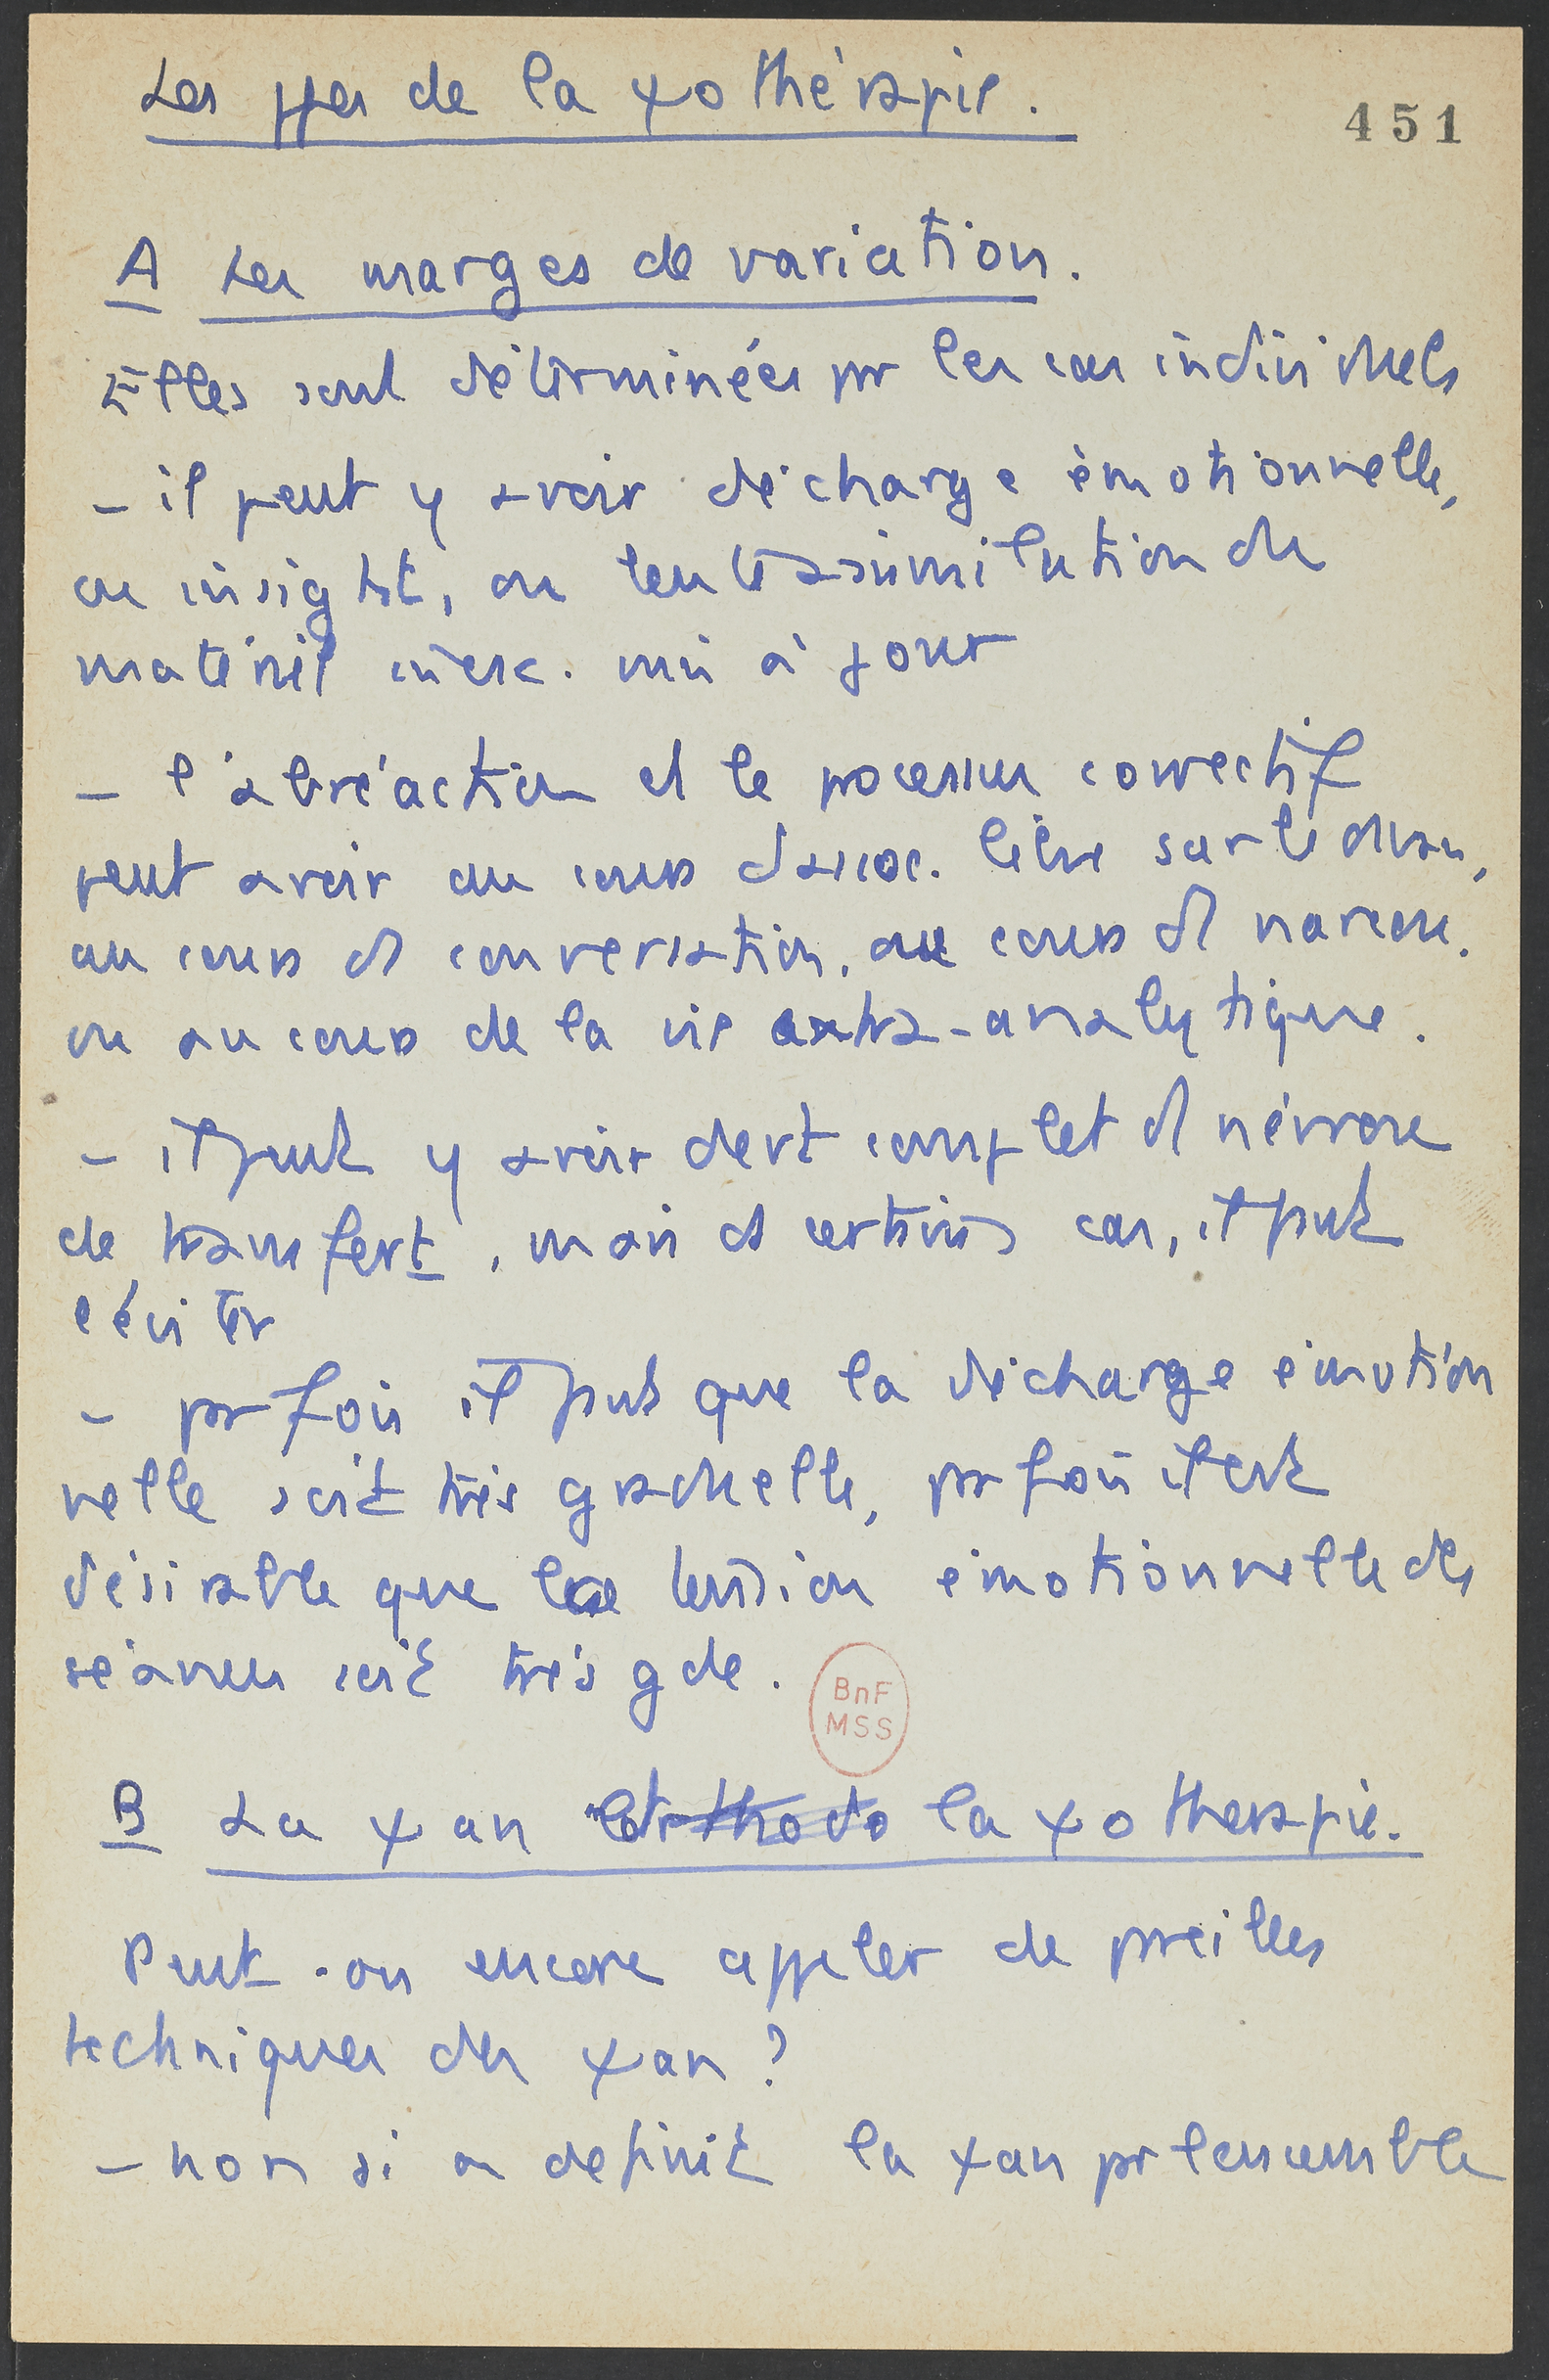 Les ppes de la ψothérapie.
451
A Les marges de variation.
Elles sont déterminées pr les cas individuels
- il peut y avoir décharge émotionnelle,
ou insight, ou lente assimilation du
matériel incsc. mis à jour
- l'abréaction et le processus correctif
peut avoir au cours d'assoc. libre sur le divan,
au cours d conversation, au cours d narcose.
ou au cours de la vie extra-analytique.
- il peut y avoir devt complet d névrose
de transfert, mais ds certains cas, il peut
l'éviter
- parfois il faut que la décharge émotion
nelle soit très graduelle, parfois il est
désirable que la tension émotionnelle des
séances soit très gde.
BnF
MSS
B La ψan orthodo la ψotherapie.
Peut-on encore appeler de pareilles
techniques des ψan ?
- non si on définit la ψan pr l'ensemble